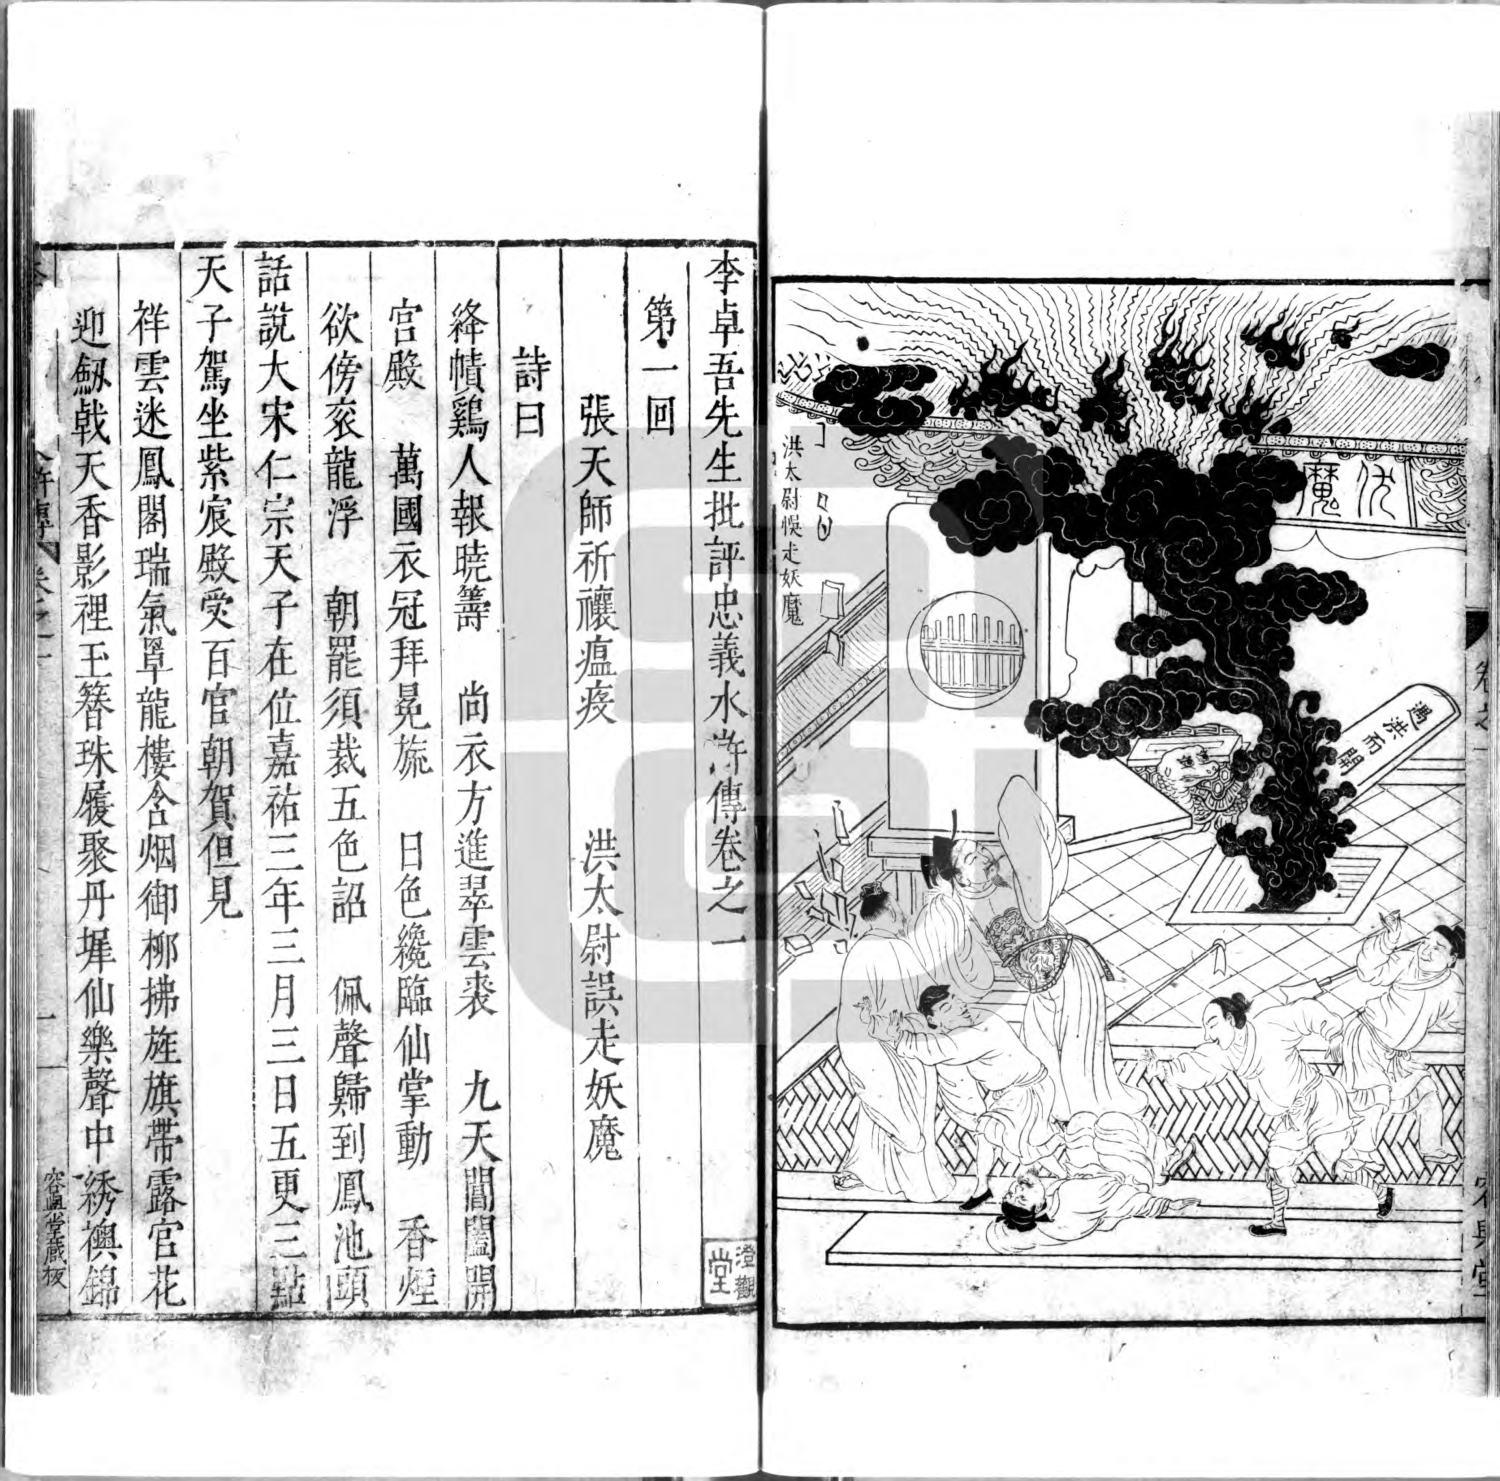 卷之一
容與堂
伏魔
遇洪而開
洪太尉悞走妖魔
李卓吾先生批評忠義水滸傳卷之一
澄觀堂
第一回
張天師祈禳瘟疫　洪太尉誤走妖魔
詩曰
絳幘鷄人報暁籌　尚衣方進翠雲裘　九天閶闔開
宮殿　萬國衣冠拜冕旒　日色纔臨仙掌動　香煙
欲傍衮龍浮　朝罷須裁五色詔　佩聲歸到鳳池頭
話說大宋仁宗天子在位嘉祐三年三月三日五更三點
天子駕坐紫宸殿受百官朝賀但見
祥雲迷鳳閣瑞氣罩龍樓含烟御柳拂旌旗帶露宮花
迎劔戟天香影裡玉簪珠履聚丹墀仙樂聲中綉襖錦
卷之一　一　容與堂藏板